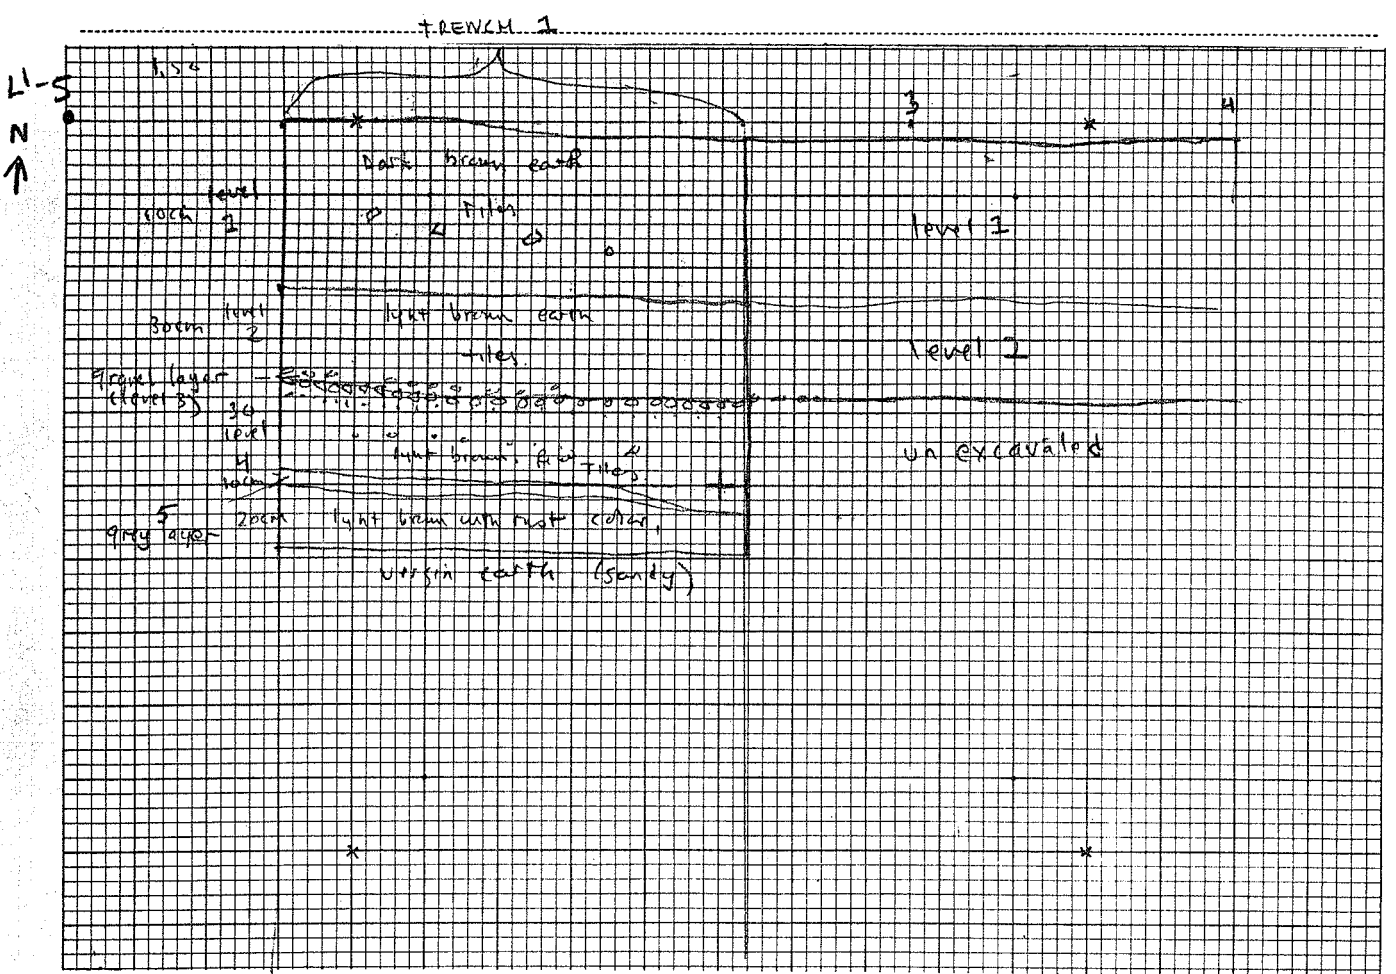 TRENCH 1
1,50
L'-5
3
4
N
Dark brown earth
level
1
Tiles
level 1
level
2
light brown earth
30cm
tiles.
level 2
gravel layer
(level 3)
30
level
4
light brown.
Tiles
un excavated
10cm
5
20cm
light brown with rust color,
grey layer
virgin earth (sandy)